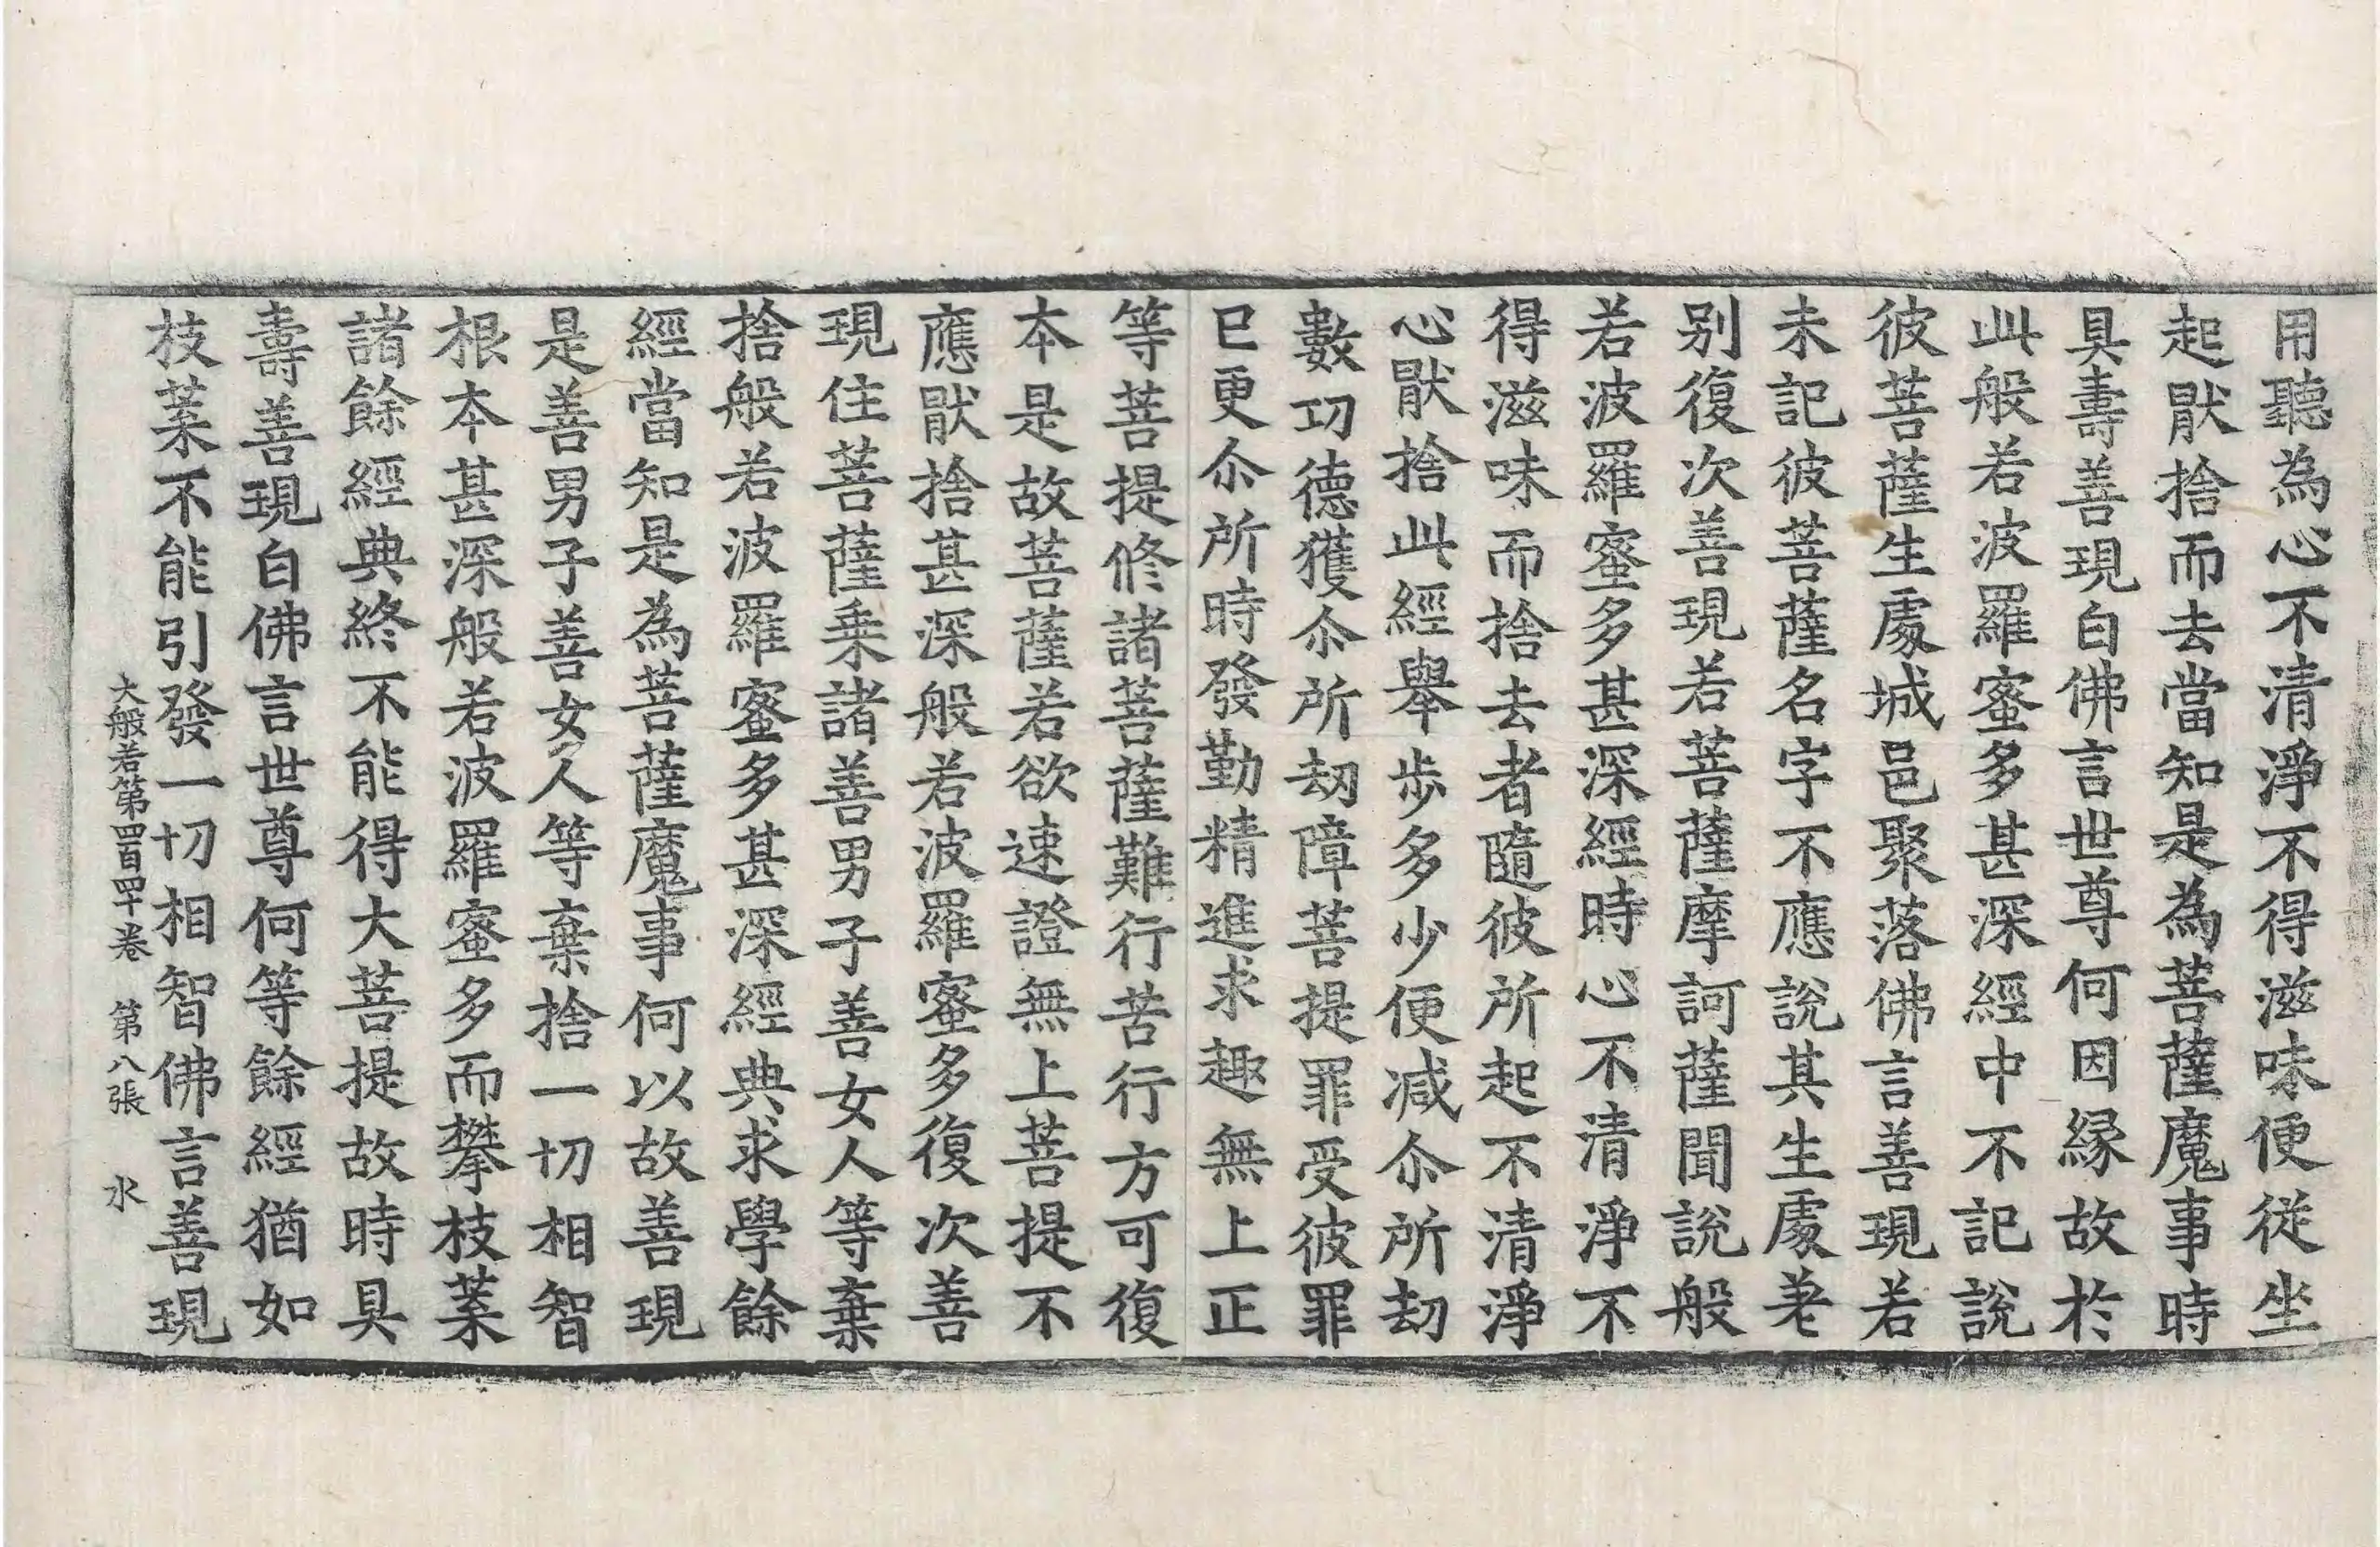 用聽為心不清淨不得滋味便從坐
起猒捨而去當知是為菩薩魔事時
具壽善現白佛言世尊何因緣故於
此般若波羅蜜多甚深經中不記說
彼菩薩生處城邑聚落佛言善現若
未記彼菩薩名字不應說其生處差
別復次善現若菩薩摩訶薩聞說般
若波羅蜜多甚深經時心不清淨不
得滋味而捨去者隨彼所起不清淨
心猒捨此經舉步多少便減尒所劫
數功德獲尒所劫障菩提罪受彼罪
已更尒所時發勤精進求趣無上正
等菩提修諸菩薩難行苦行方可復
本是故菩薩若欲速證無上菩提不
應猒捨甚深般若波羅蜜多復次善
現住菩薩乘諸善男子善女人等棄
捨般若波羅蜜多甚深經典求學餘
經當知是為菩薩魔事何以故善現
是善男子善女人等棄捨一切相智
根本甚深般若波羅蜜多而攀枝葉
諸餘經典終不能得大菩提故時具
壽善現白佛言世尊何等餘經猶如
枝葉不能引發一切相智佛言善現
大般若第四百四十卷 第八張 水